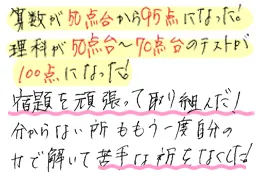 算数が50点台から95点になった!
理科が50点台～70点台のテストが
100点になった!
宿題を頑張って取り組んだ!
分からない所ももう一度自分の
力で解いて苦手な所をなくした!